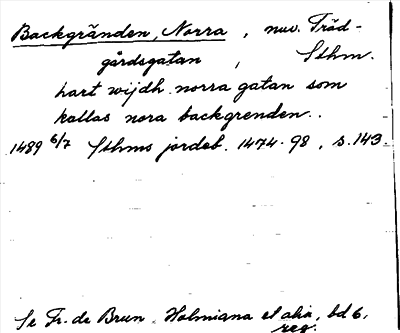 Backgränden, Norra, nuv. Träd-
gårdsgatan, Sthm.
hart wijdh norra gatan som
kallas nora backgrenden..
1489 6/7 Sthms jordeb. 1474-98, s. 143.
Se Fr. de Brun. Holmiana et alia, bd 6,
reg.